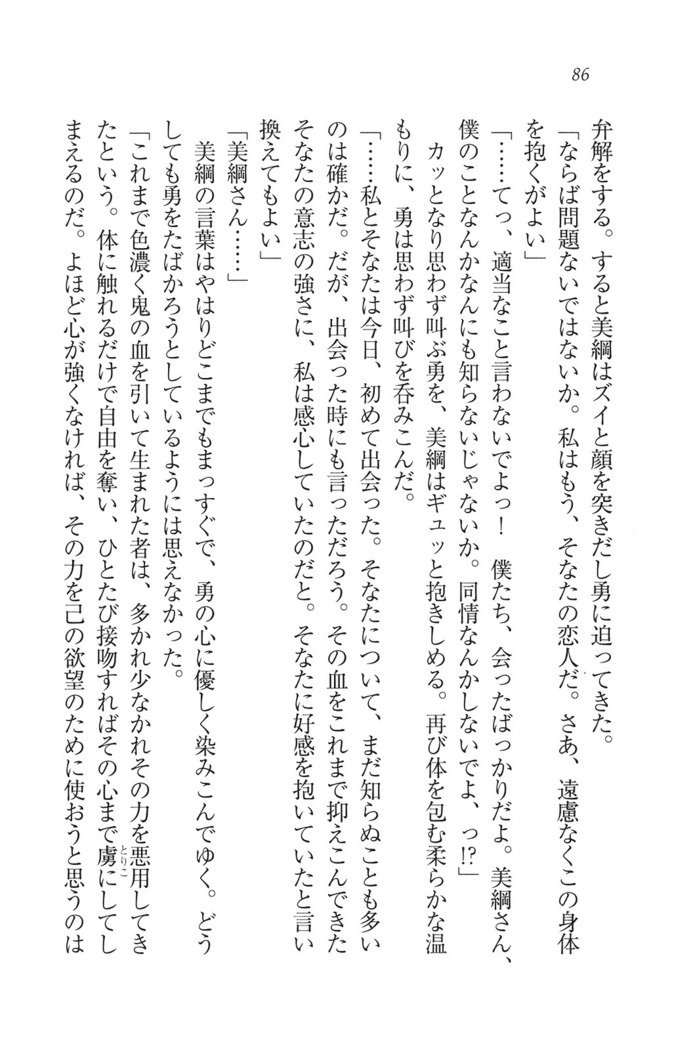 86
弁解をする。すると美綱はズイと顔を突きだし勇に迫ってきた。
「ならば問題ないではないか。私はもう、そなたの恋人だ。さあ、遠慮なくこの身体
を抱くがよい」
「……てっ、適当なこと言わないでよっ！　僕たち、会ったばっかりだよ。美綱さん、
僕のことなんかなんにも知らないじゃないか。同情なんかしないでよ、っ!?」
　カッとなり思わず叫ぶ勇を、美綱はギュッと抱きしめる。再び体を包む柔らかな温
もりに、勇は思わず叫びを呑みこんだ。
「……私とそなたは今日、初めて出会った。そなたについて、まだ知らぬことも多い
のは確かだ。だが、出会った時にも言っただろう。その血をこれまで抑えこんできた
そなたの意志の強さに、私は感心していたのだと。そなたに好感を抱いていたと言い
換えてもよい」
「美綱さん……」
　美綱の言葉はやはりどこまでもまっすぐで、勇の心に優しく染みこんでゆく。どう
しても勇をたばかろうとしているようには思えなかった。
「これまで色濃く鬼の血を引いて生まれた者は、多かれ少なかれその力を悪用してき
たという。体に触れるだけで自由を奪い、ひとたび接吻すればその心まで虜にしてし
とりこ
まえるのだ。よほど心が強くなければ、その力を己の欲望のために使おうと思うのは